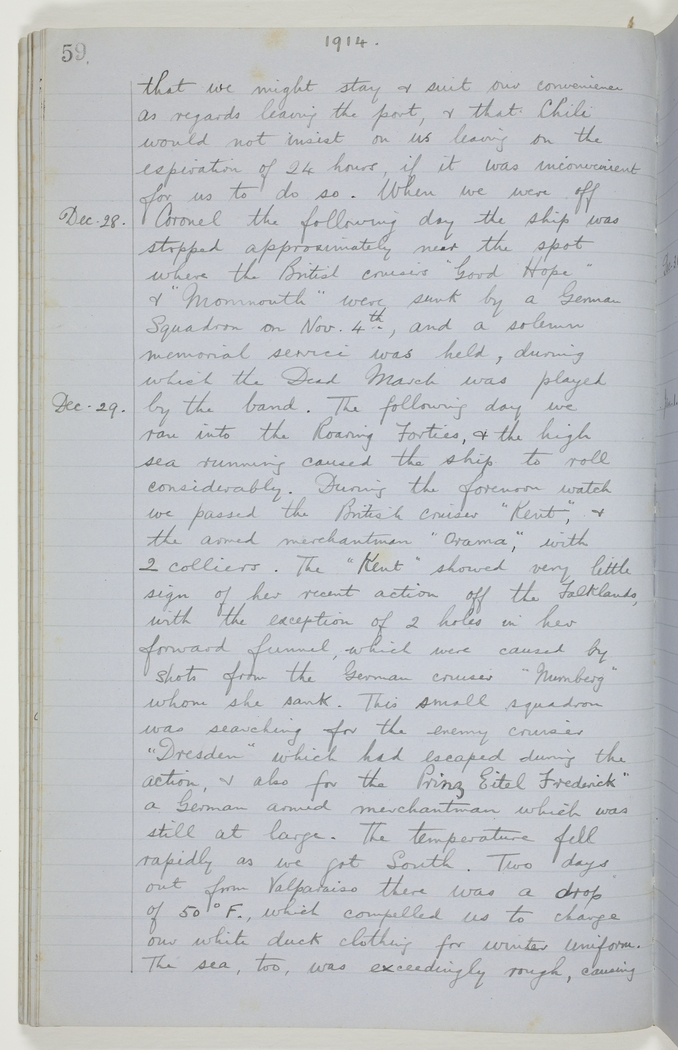 59.
1914.
that we might stay & suit our convenience
as regards leaving the port, & that Chili
would not insist on us leaving on the
expiration of 24 hours, if it was inconvenient
for us to do so. When we were off
Dec. 28. Coronel the following day the ship was
stopped approximately near the spot
where the British cruisers "Good Hope"
& "Monmouth" were sunk by a German
Squadron on Nov. 4th, and a solemn
memorial service was held, during
which the Dead March was played
Dec. 29. by the band. The following day we
ran into the Roaring Forties, & the high
sea running caused the ship to roll
considerably. During the forenoon watch
we passed the British cruiser "Kent", &
the armed merchantman "Orama", with
2 colliers. The "Kent" showed very little
sign of her recent action off the Falklands,
with the exception of 2 holes in her
forward funnel, which were caused by
shots from the German cruiser "Nurnberg"
whom she sank. This small squadron
was searching for the enemy cruiser
"Dresden" which had escaped during the
action, & also for the Prinz Eitel Frederick"
a German armed merchantman which was
still at large. The temperature fell
rapidly as we got South. Two days
out from Valparaiso there was a drop
of 50° F., which compelled us to change
our white duck clothing for winter uniform.
The sea, too, was exceedingly rough, causing